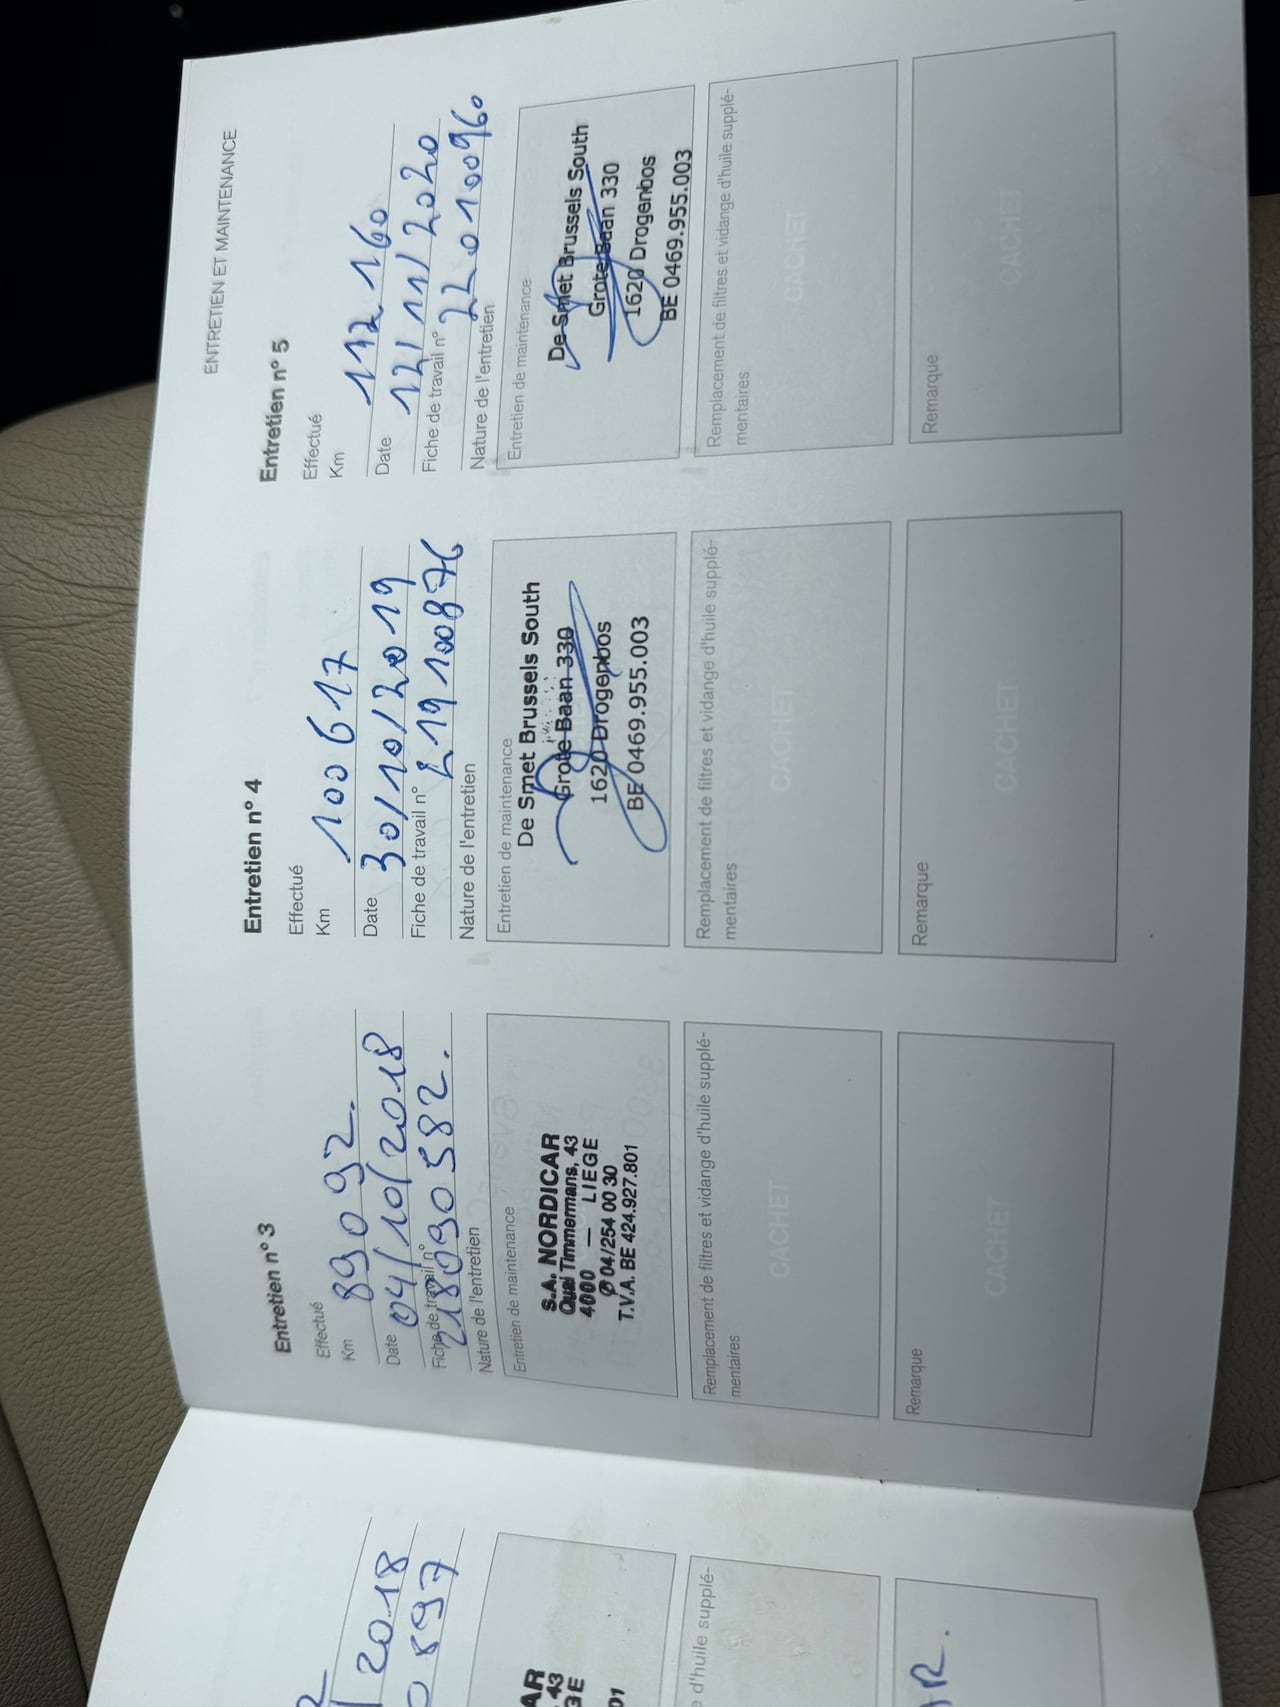 ENTRETIEN ET MAINTENANCE
Entretien n° 3
Effectué
Km 89092.
Date 04/10/2018
Fiche de travail n° 218090582.
Nature de l'entretien
Entretien de maintenance
S.A. NORDICAR
Quai Timmermans, 43
4000 — LIEGE
✆ 04/254 00 30
T.V.A. BE 424.927.801
Remplacement de filtres et vidange d'huile supplé-
mentaires
CACHET
Remarque
CACHET
Entretien n° 4
Effectué
Km 100617
Date 30/10/2019
Fiche de travail n° 219100876
Nature de l'entretien
Entretien de maintenance
De Smet Brussels South
Grote Baan 330
1620 Drogenbos
BE 0469.955.003
Remplacement de filtres et vidange d'huile supplé-
mentaires
CACHET
Remarque
CACHET
Entretien n° 5
Effectué
Km 112 160
Date 12/11/2020
Fiche de travail n° 220100960
Nature de l'entretien
Entretien de maintenance
De Smet Brussels South
Grote Baan 330
1620 Drogenbos
BE 0469.955.003
Remplacement de filtres et vidange d'huile supplé-
mentaires
CACHET
Remarque
CACHET
2018
0897
AR
43
GE
01
d'huile supplé-